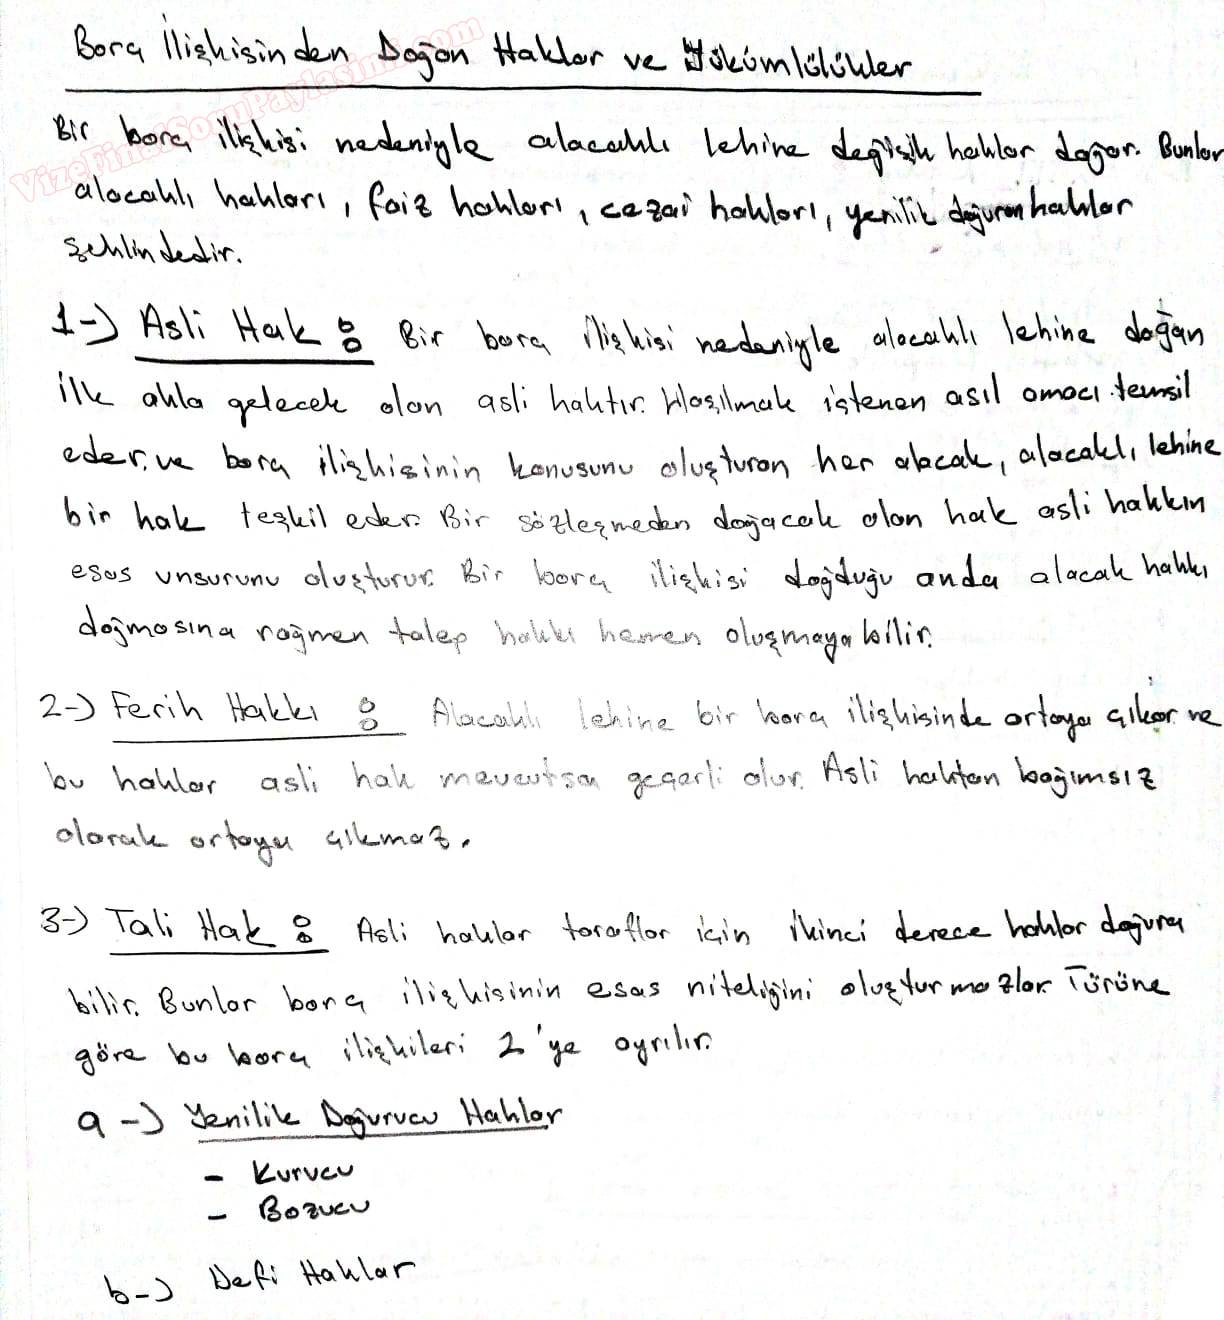 Borç İlişkisinden Doğan Haklar ve Yükümlülükler
VizeFinalSoruPaylasimi.com
Bir borç ilişkisi nedeniyle alacaklı lehine değişik haklar doğar. Bunlar
alacaklı hakları, faiz hakları, cezai hakları, yenilik doğuran haklar
şeklindedir.
1-) Asli Hak : Bir borç ilişkisi nedeniyle alacaklı lehine doğan
ilk akla gelecek olan asli haktır. Ulaşılmak istenen asıl amacı temsil
eder. ve borç ilişkisinin konusunu oluşturan her alacak, alacaklı lehine
bir hak teşkil eder. Bir sözleşmeden doğacak olan hak asli hakkın
esas unsurunu oluşturur. Bir borç ilişkisi doğduğu anda alacak hakkı
doğmasına rağmen talep hakkı hemen oluşmayabilir.
2-) Ferih Hakkı : Alacaklı lehine bir borç ilişkisinde ortaya çıkar ve
bu haklar asli hak mevcutsa geçerli olur. Asli haktan bağımsız
olarak ortaya çıkmaz.
3-) Tali Hak : Asli haklar taraflar için ikinci derece haklar doğura
bilir. Bunlar borç ilişkisinin esas niteliğini oluşturmazlar. Türüne
göre bu borç ilişkileri 2'ye ayrılır.
a-) Yenilik Doğurucu Haklar
- Kurucu
- Bozucu
b-) Defi Haklar